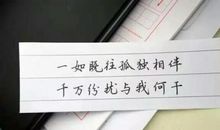 一如既往孤独相伴
千万份扰与我何干